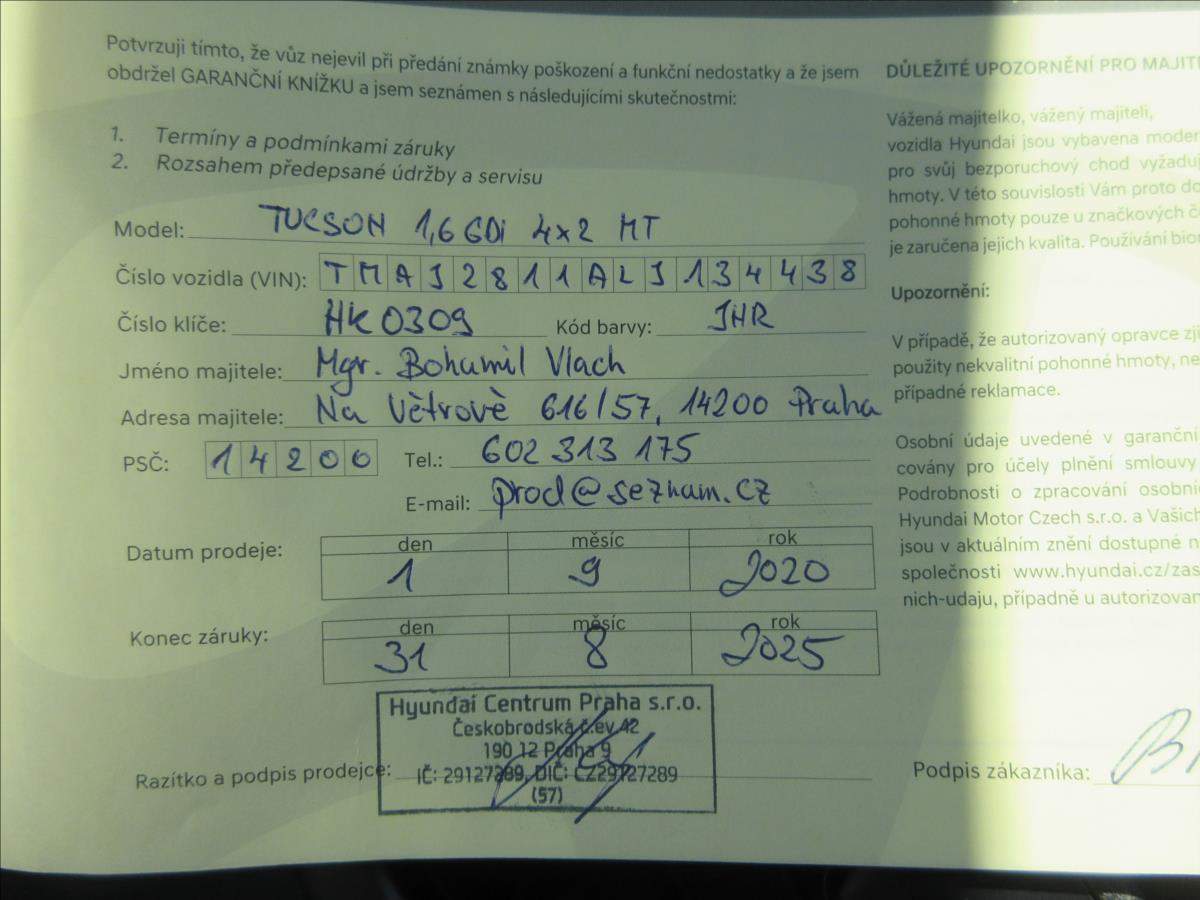 Potvrzuji tímto, že vůz nejevil při předání známky poškození a funkční nedostatky a že jsem
obdržel GARANČNÍ KNÍŽKU a jsem seznámen s následujícími skutečnostmi:
1. Termíny a podmínkami záruky
2. Rozsahem předepsané údržby a servisu
Model: TUCSON 1,6 GDi 4x2 MT
Číslo vozidla (VIN): TMAJ2811ALJ134438
Číslo klíče: HK0309 Kód barvy: JHR
Jméno majitele: Mgr. Bohumil Vlach
Adresa majitele: Na Větrově 616/57, 14200 Praha
PSČ: 14200 Tel.: 602 313 175
E-mail: prod@seznam.cz
Datum prodeje: den měsíc rok
1 9 2020
Konec záruky: den měsíc rok
31 8 2025
Hyundai Centrum Praha s.r.o.
Českobrodská č.ev.42
190 12 Praha 9
Razítko a podpis prodejce: IČ: 29127289, DIČ: CZ29127289
(57)
DŮLEŽITÉ UPOZORNĚNÍ PRO MAJIT
Vážená majitelko, vážený majiteli,
vozidla Hyundai jsou vybavena moder
pro svůj bezporuchový chod vyžaduj
hmoty. V této souvislosti Vám proto do
pohonné hmoty pouze u značkových č
je zaručena jejich kvalita. Používání bio
Upozornění:
V případě, že autorizovaný opravce zj
použity nekvalitní pohonné hmoty, ne
případné reklamace.
Osobní údaje uvedené v garanční
covány pro účely plnění smlouvy
Podrobnosti o zpracování osobní
Hyundai Motor Czech s.r.o. a Vašich
jsou v aktuálním znění dostupné n
společnosti www.hyundai.cz/zas
nich-udaju, případně u autorizovan
Podpis zákazníka: